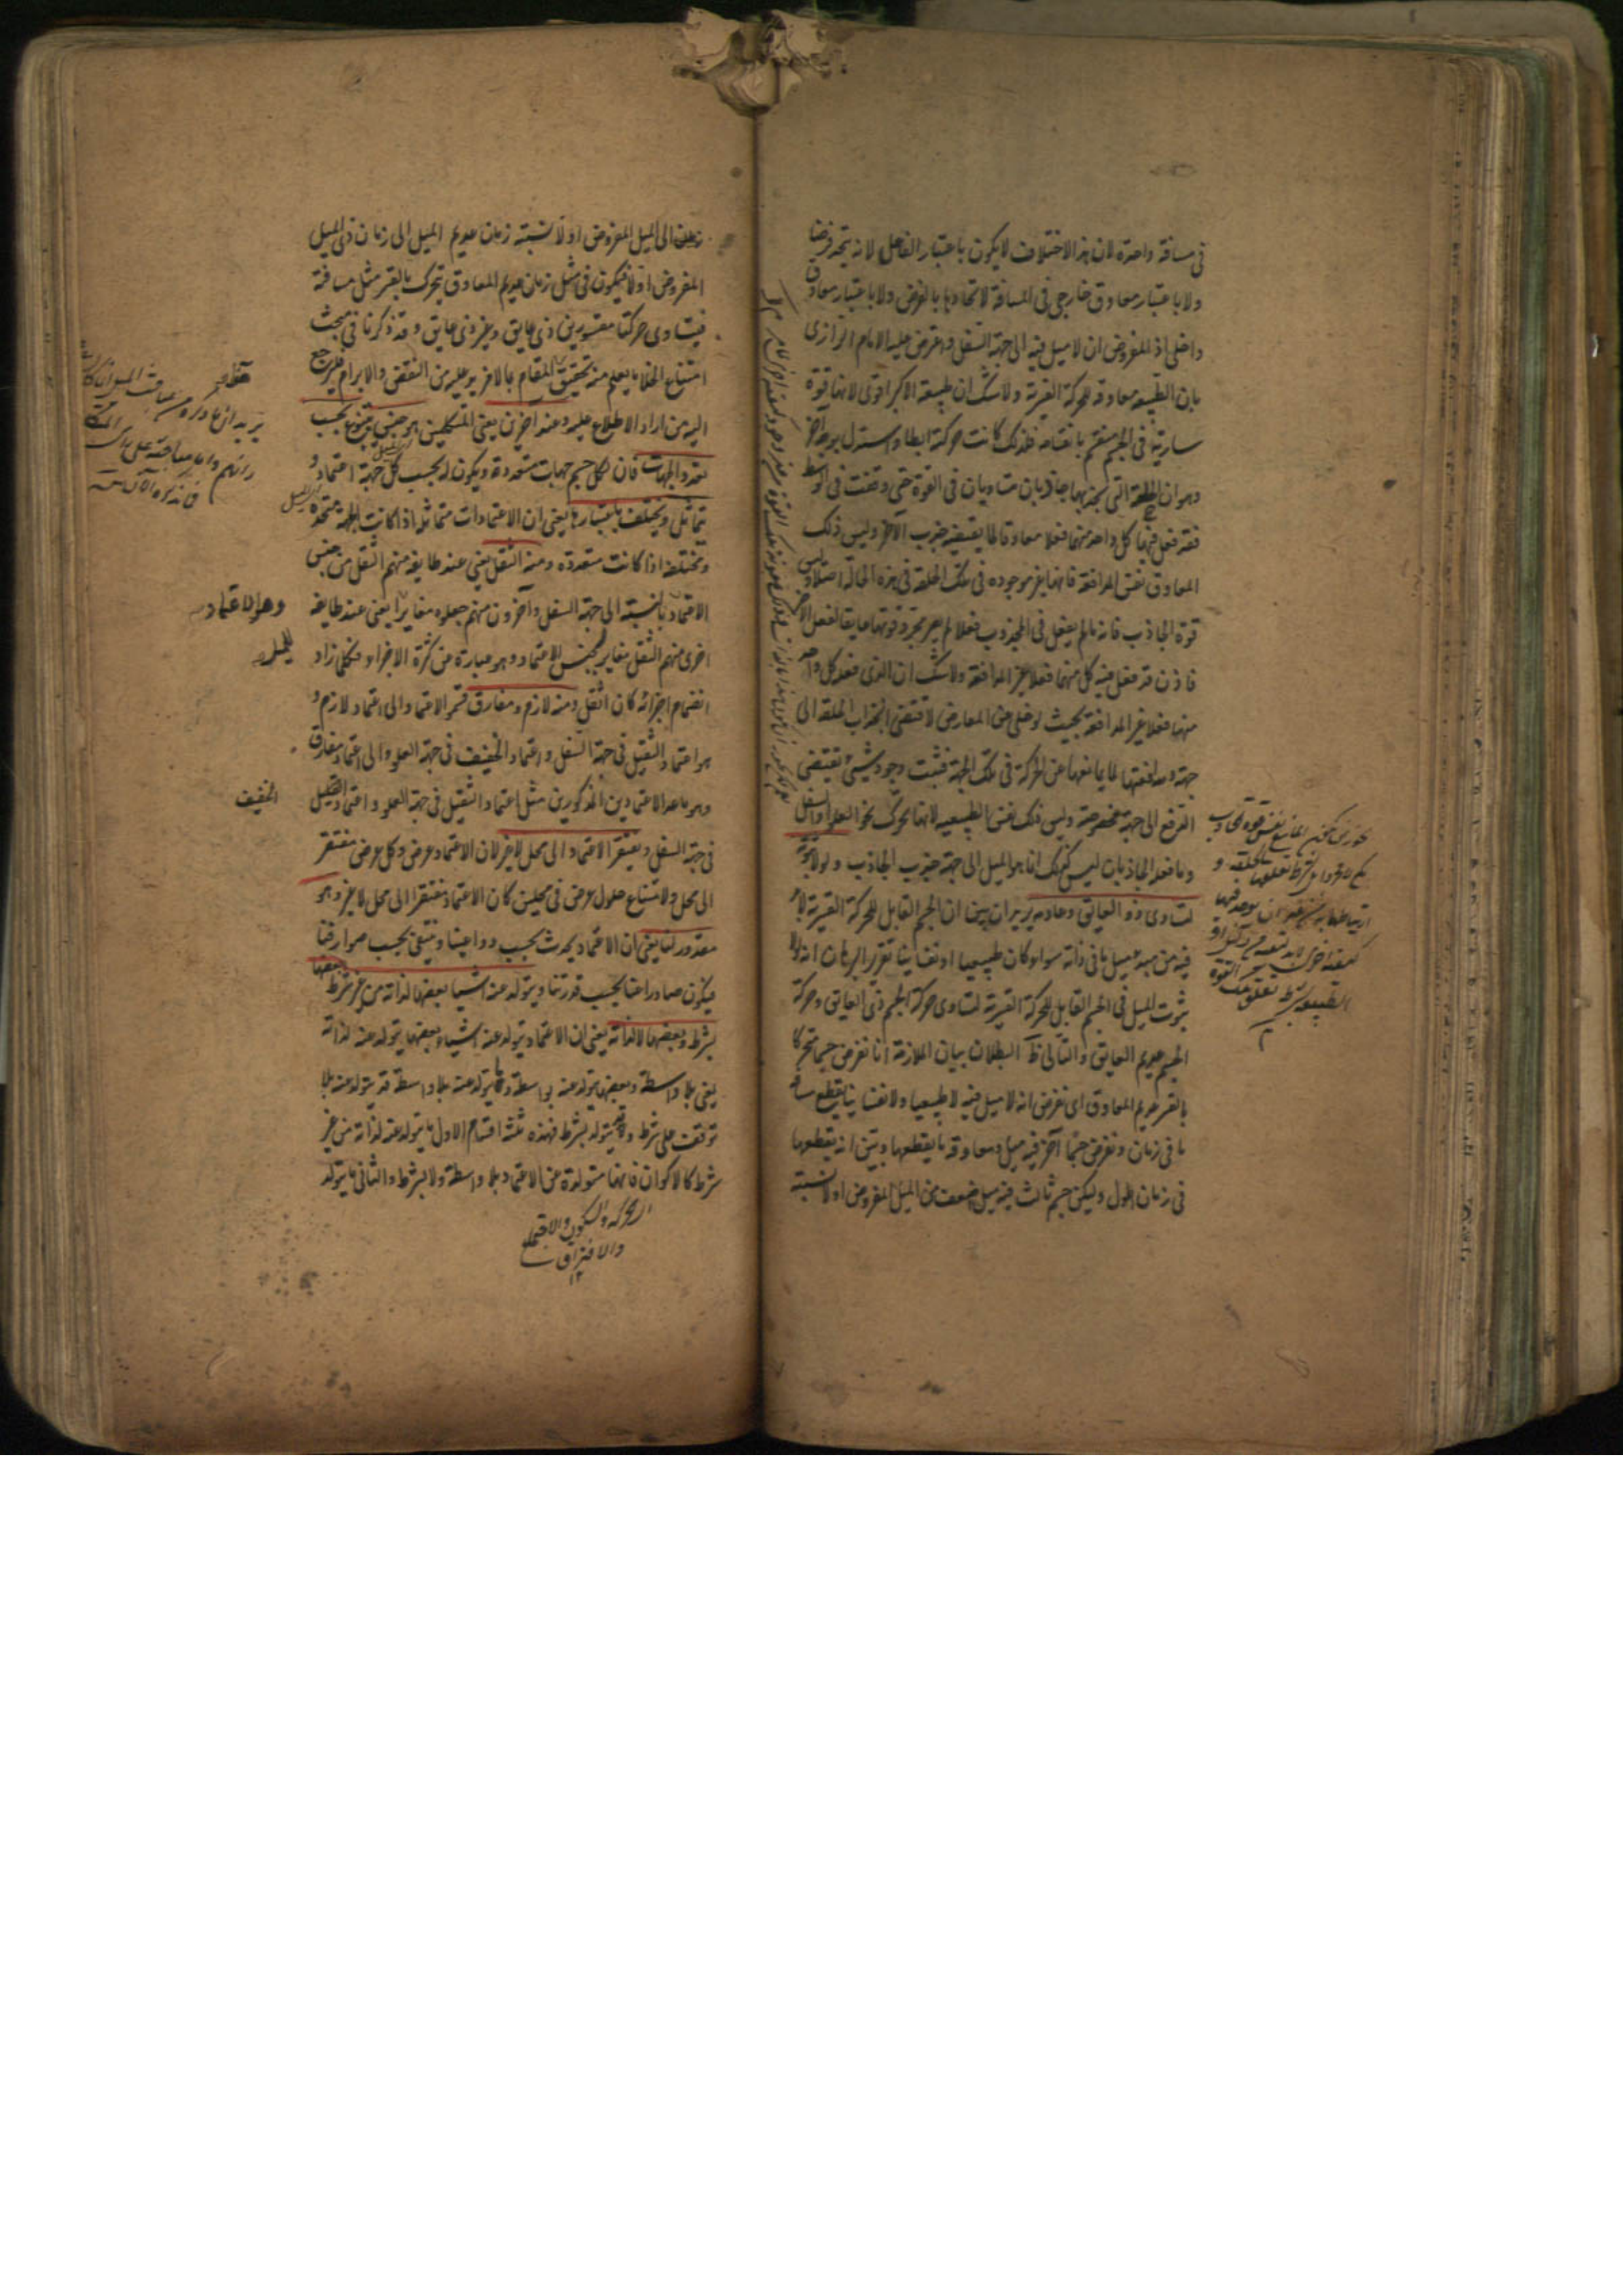 فى مسافة واحدة لان هذا الاختلاف لا يكون باعتبار الفاعل لانه متحد فرضا
ولا باعتبار معاوق خارجى فى المسافة لاتحادها بالفرض ولا باعتبار معاوق
داخلى اذ المفروض ان لا ميل فيه الى جهة السفل واعترض عليه الامام الرازى
بان الطبيعة معاوقة للحركة القسرية ولا شك ان طبيعة الاكبر اقوى لانها قوة
سارية فى الجسم منقسمة بانقسامه فلذلك كانت حركته ابطا واستدل بوجه آخر
وهو ان الحلقة التى يجذبها جاذبان متساويان فى القوة حتى وقفت فى الوسط
فقد فعل فيها كل واحد منهما فعلا معاوقا لما يقتضيه جذب الآخر وليس ذلك
المعاوق نفس المدافعة فانها غير موجودة فى تلك الحلقة فى هذه الحالة اصلا وليس
قوة الجاذب فانه ما لم يفعل فى المجذوب فعلا لم يصر مجرد قوتهما عايقا لفعل الآخر
فاذن قد فعل فيه كل منهما فعلا غير المدافعة ولا شك ان الذى فعله كل واحد
منهما فعلا غير المدافعة بحيث لو خلى عن المعارض لاقتضى انجذاب الحلقة الى
جهة ومدافعتها لما يمانعها عن الحركة فى تلك الجهة فثبت وجود شىء يقتضى
الدفع الى جهة مخصوصة وليس ذلك نفس الطبيعية لانها تحرك نحو العلو او السفل
وما فعله الجاذبان ليس كذلك انما هو الميل الى جهة جذب الجاذب ولولا ثبوته
لتساوى ذو العايق وعادمه يريد ان يبين ان الجسم القابل للحركة القسرية لا بد
فيه من مبدء ميل ما فى ذاته سواء كان طبيعيا او نفسانيا تقرير البرهان انه لولا
ثبوت الميل فى الجسم القابل للحركة القسرية لتساوى حركة الجسم ذى العايق وحركة
الجسم عديم العايق والتالى ظ البطلان بيان الملازمة انا نفرض جسما متحركا
بالقسر عديم المعاوق اى نفرض انه لا ميل فيه لا طبيعيا ولا نفسانيا يقطع مسافة
ما فى زمان ونفرض جسما آخر فيه ميل ومعاوقة ما يقطعها وبين انه يقطعها
فى زمان اطول وليكن جسم ثالث فيه ميل اضعف من الميل المفروض اولا نسبته
الى الميل المفروض اولا كنسبة زمان عديم الميل الى زمان ذى الميل
المفروض اولا فيكون فى مثل زمان عديم المعاوق يتحرك بالقسر مثل مسافته
فيتساوى حركتا مقسورين ذى عايق وغير ذى عايق وقد ذكرنا فى مبحث
امتناع الخلا ما يعلم منه تحقيق المقام بما لا مزيد عليه من النقض والابرام فليرجع
اليه من اراد الاطلاع عليه وعند آخرين يعنى المتكلمين هو جنس يتنوع بحسب
تعدد الجهات فان لكل جسم جهات متعددة ويكون له بحسب كل جهة اعتماد و
يتماثل ويختلف باعتبارها يعنى ان الاعتمادات متماثلة اذا كانت الجهة متحدة
ومختلفة اذا كانت متعددة ومنه الثقل يعنى عند طايفة منهم الثقل من جنس
الاعتماد بالنسبة الى جهة السفل وآخرون منهم جعلوه مغايرا يعنى عند طايفة
اخرى منهم الثقل مغاير لجنس الاعتماد وهو عبارة عن كثرة الاجزاء فكلما زاد
انضمام اجزائه كان اثقل ومنه لازم ومفارق قسموا الاعتماد الى اعتماد لازم و
هو اعتماد الثقيل فى جهة السفل واعتماد الخفيف فى جهة العلو والى اعتماد مفارق
وهو ما عدا الاعتمادين المذكورين مثل اعتماد الثقيل فى جهة العلو واعتماد الثقيل
فى جهة السفل ويفتقر الاعتماد الى محل لا غير لان الاعتماد عرض وكل عرض مفتقر
الى محل ولامتناع حلول عرض فى محلين كان الاعتماد مفتقرا الى محل لا غير وهو
مقدور لنا يعنى ان الاعتماد يحدث بحسب دواعينا وينتفى بحسب صوارفنا
فيكون صادرا عنا بحسب قدرتنا ويتولد عنه اشيا بعضها لذاته من غير شرط وبعضها
بشرط وبعضها لا لذاته يعنى ان الاعتماد يتولد عنه اشياء بعضها يتولد عنه لذاته
يعنى بلا واسطة وبعضها يتولد عنه بواسطة وما يتولد عنه بلا واسطة قد يتولد عنه بلا
توقف على شرط وقد يتولد بشرط فهذه ثلثة اقسام الاول ما يتولد عنه لذاته من غير
شرط كالاكوان فانها متولدة عن الاعتماد بلا واسطة ولا بشرط والثانى ما يتولد
الحركة والسكون والاجتماع
والافتراق
١٢
وهو الاعتماد
الميل
الخفيف